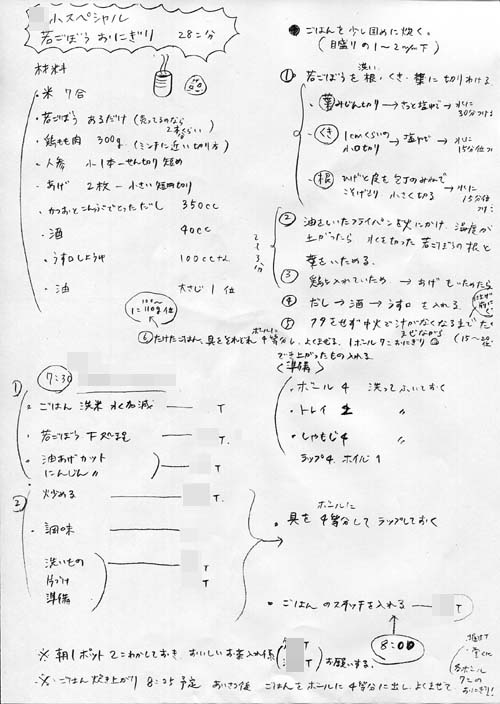 小スペシャル
若ごぼう おにぎり 28コ分
材料
・米 7合
・若ごぼう あるだけ (売ってるのなら 2本くらい)
・鶏もも肉 300g (ミンチに近い切り方)
・人参 小1本 – せん切り 短め
・あげ 2枚 – 小さい短冊切り
・かつおとこんぶでとっただし 350cc
・酒 40cc
・うす口しょうゆ 100cc
・油 大さじ1位
●ごはんを少し固めに炊く。
(目盛りの1〜2mm下)
① 若ごぼうを洗い 根・くき・葉に切りわける
・葉 みじん切り→さっと塩ゆで→水に30分つける
・くき 1cmくらいの小口切り→塩ゆで→水に15分位
・根 ひげと皮を包丁のみねでこそげとり 小さく切る→水に15分位
② 油をしいたフライパンを火にかけ、温度が
上がったら 水を切った若ごぼうの根と
葉をいためる。
2〜3分
③ 鶏を入れていため → あげ
④ だし→酒→うす口 を入れる。
⑤ フタをせず中火で汁がなくなるまでたく
(15〜20位)
⑥ たけたごはん、具をそれぞれボールに4等分し、よくまぜる。1ホール7コおにぎり
でき上がったもの入れる
〈準備〉
・ボール 4 洗ってふいておく
・トレイ 〃
・しゃもじ 4 〃
ラップ4. ホイル1
① 7:30
・ごはん 洗米 水加減 T
・若ごぼう 下処理 T.
・油あげカット
にんじん 〃 T
② 炒める T.
・調味
洗いもの T
片づけ T
準備
・具をボールに4等分して ラップしておく
・ごはんのスイッチを入れる T
8:00
※ 朝1ポット わかしておき、おいしいお茶入れ係 T T お願いする。
※ ごはん 炊き上がり 8:25予定 あいさつ後 ごはんをボールに4等分に出し、よくまぜて、
各ボール
7コの
おにぎり!